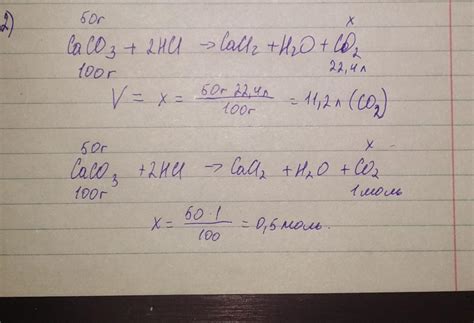 2)
50г x
CaCO₃ + 2HCl → CaCl₂ + H₂O + CO₂
100г 22,4л
V = x = 50г 22,4л / 100г = 11,2л (CO₂)
50г x
CaCO₃ + 2HCl → CaCl₂ + H₂O + CO₂
100г 1моль
x = 50 · 1 / 100 = 0,5моль.